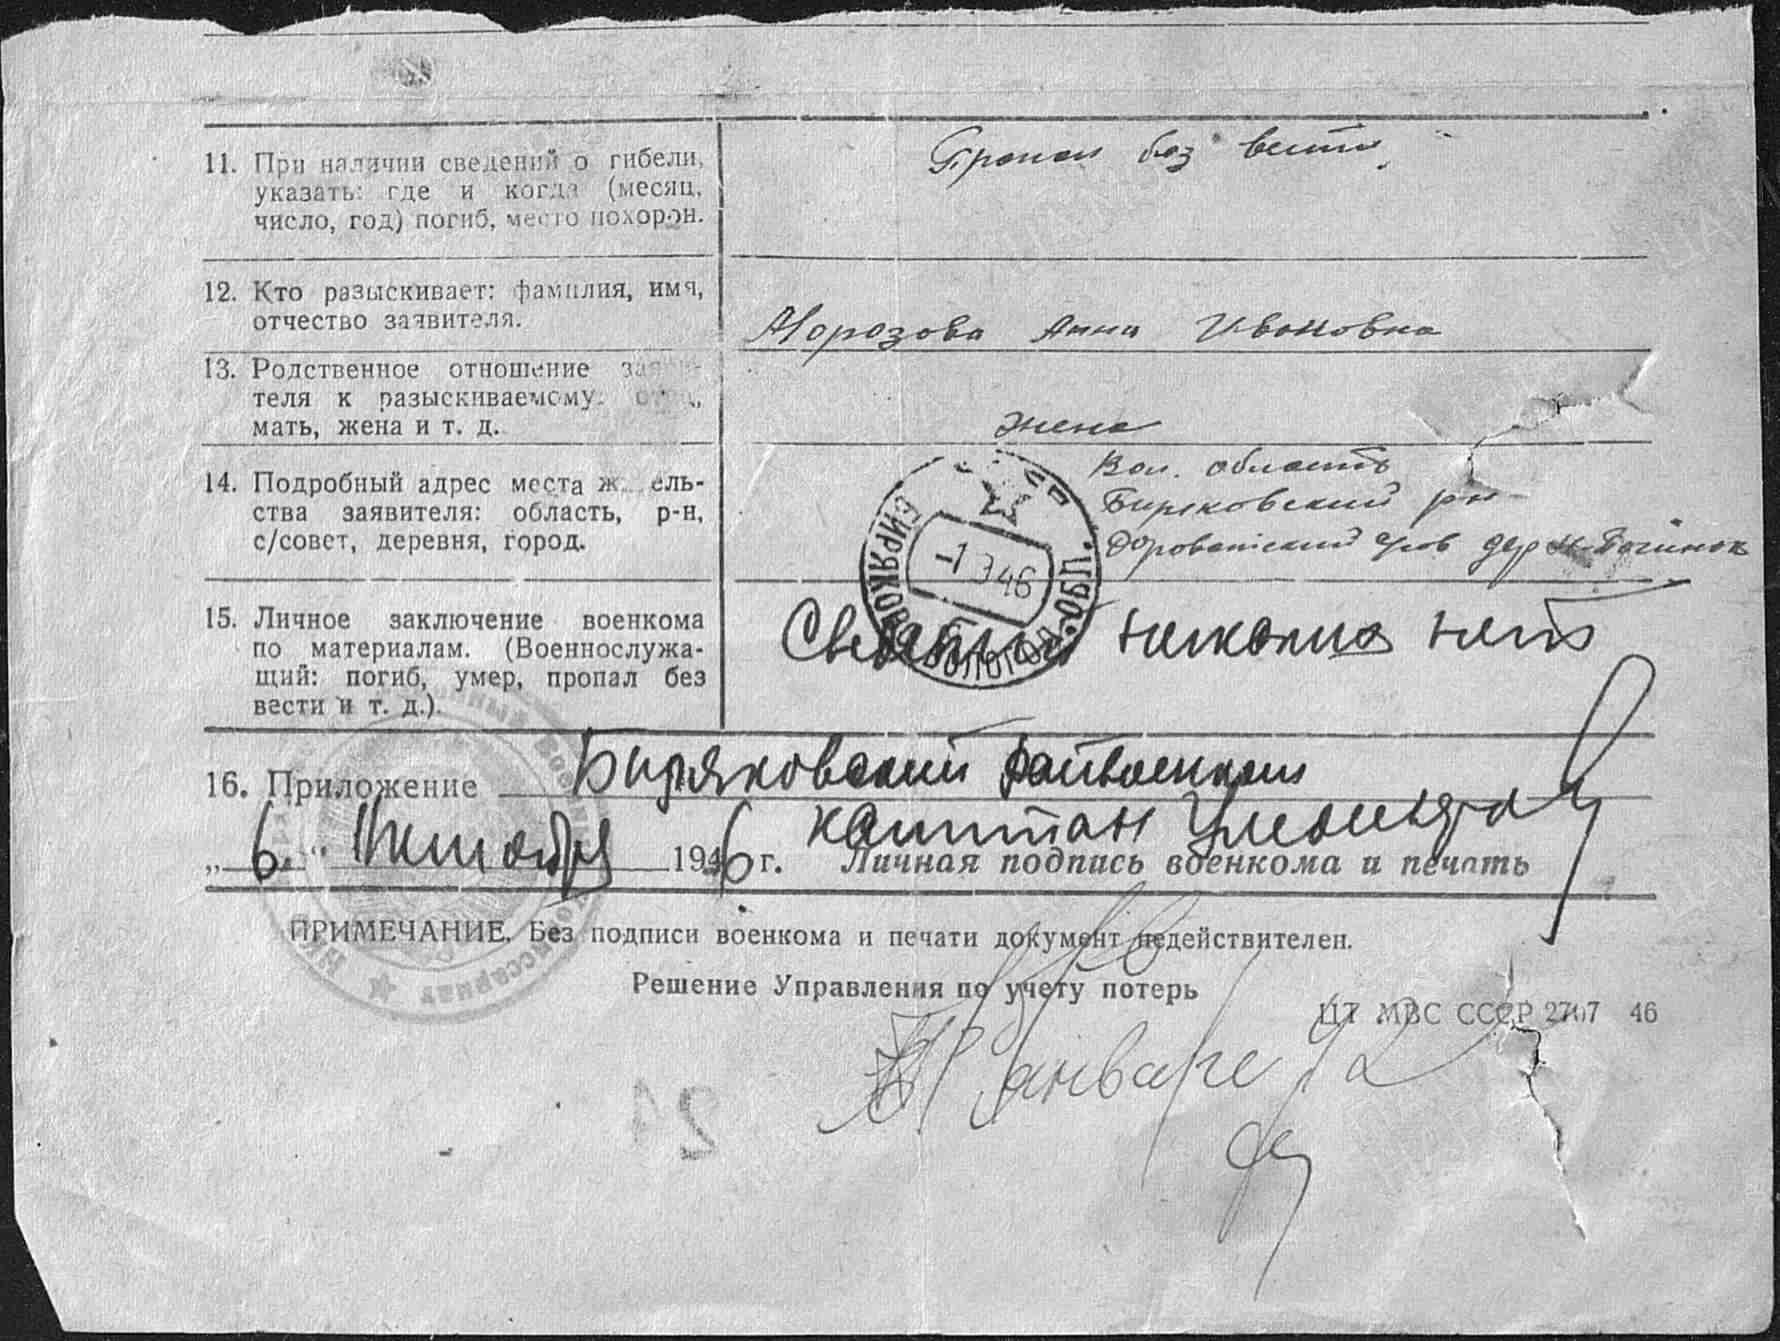 11. При наличии сведений о гибели,
указать: где и когда (месяц,
число, год) погиб, место похорон.
Пропал без вести
12. Кто разыскивает: фамилия, имя,
отчество заявителя.
Морозова Анна Ивановна
13. Родственное отношение заяви-
теля к разыскиваемому: отец,
мать, жена и т. д.
жена
14. Подробный адрес места житель-
ства заявителя: область, р-н,
с/совет, деревня, город.
Вол. область
Биряковский р-н
дер Починок
БИРЯКОВО ВОЛОГОД. ОБЛ.
-1 46
15. Личное заключение военкома
по материалам. (Военнослужа-
щий: погиб, умер, пропал без
вести и т. д.).
Сведений никаких нет
16. Приложение
Биряковский райвоенком
капитан
„6“ Октября 1946 г. Личная подпись военкома и печать
ПРИМЕЧАНИЕ. Без подписи военкома и печати документ недействителен.
Решение Управления по учету потерь
ЦТ МВС СССР 2767 46
январе 42
24